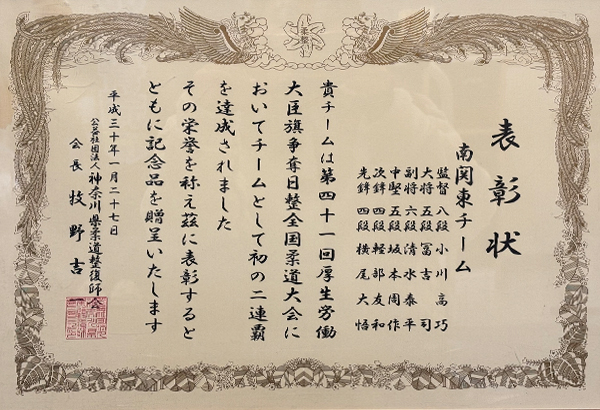 表彰状
南関東チーム
監督 八段 小川高巧
大将 五段 冨吉司
副将 六段 清水泰平
中堅 五段 坂本周作
次鋒 四段 軽部友和
先鋒 四段 横尾大悟
貴チームは第四十一回厚生労働
大臣旗争奪日整全国柔道大会に
おいてチームとして初の二連覇
を達成されました
その栄誉を称え茲に表彰すると
ともに記念品を贈呈いたします
平成三十年一月二十七日
公益社団法人 神奈川県柔道整復師会
会長 牧野吉一